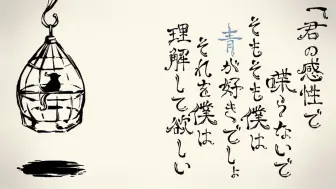 「君の感性で
喋らないで
そもそも僕は
青が好きでしょ
それを僕は
理解して欲しい